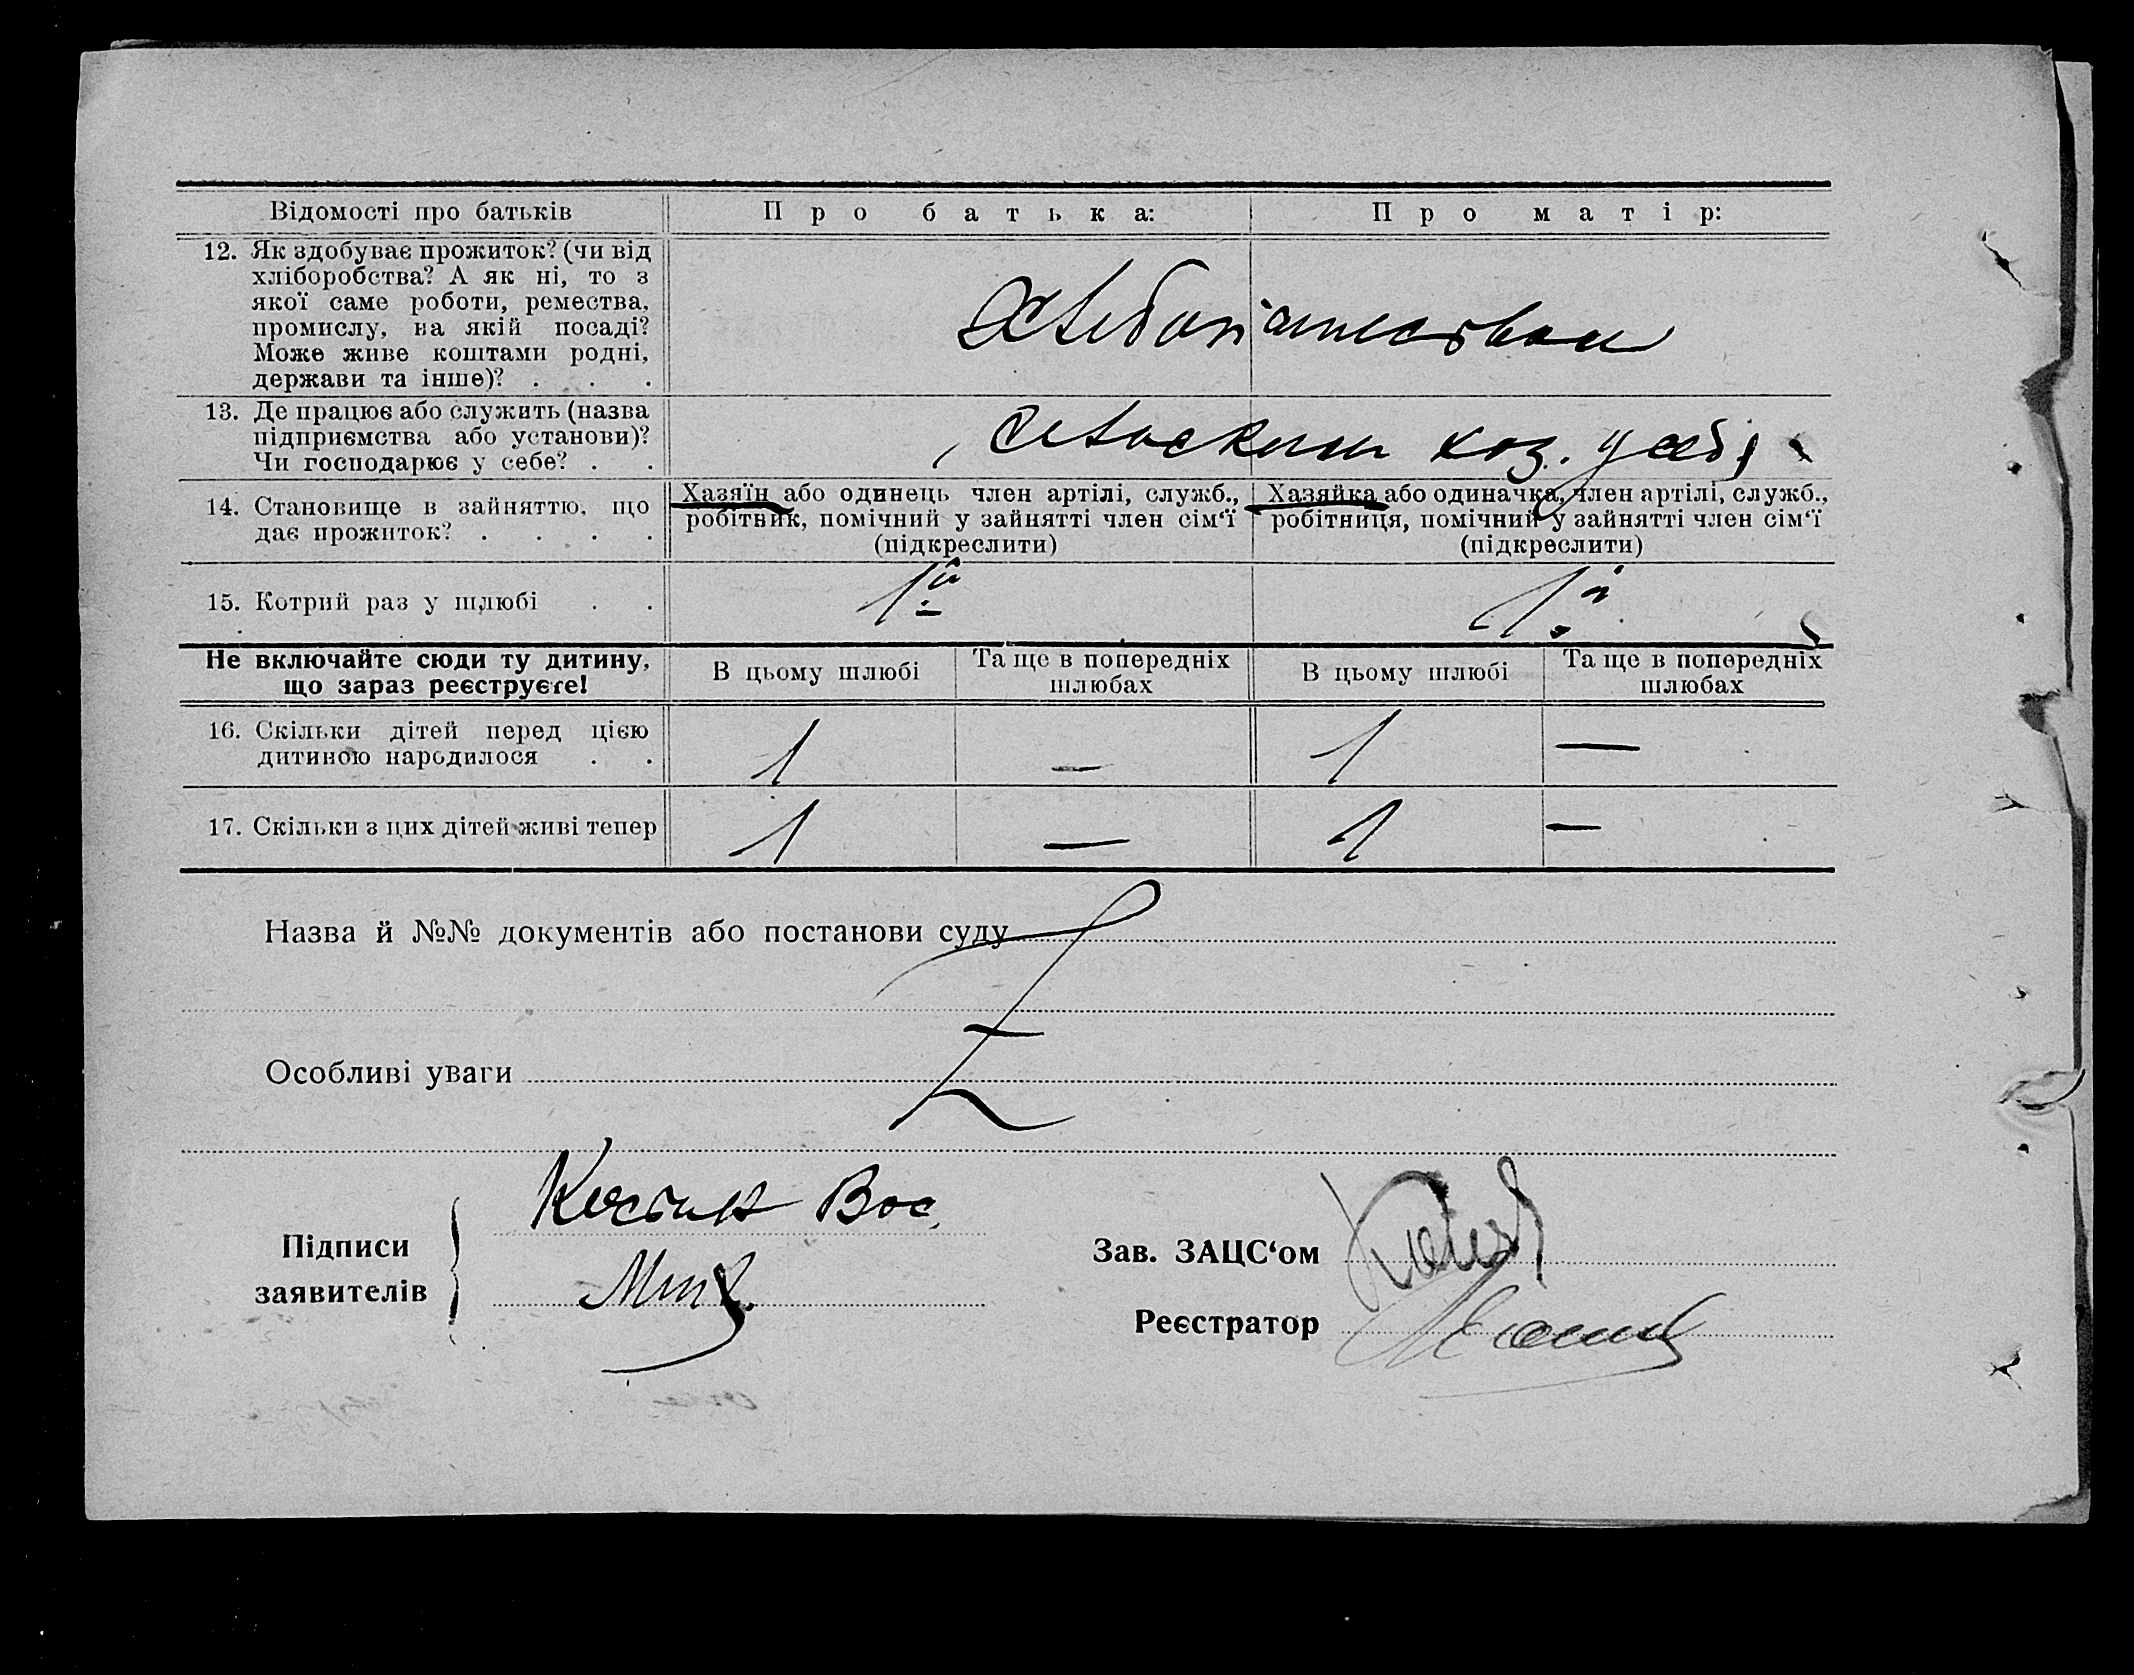 Відомості про батьків
Про батька:
Про матір:
12. Як здобуває прожиток? (чи від
хліборобства? А як ні, то з
якої саме роботи, ремества,
промислу, на якій посаді?
Може живе коштами родні,
держави та інше)? . . .
Хлебопашеством
13. Де працює або служить (назва
підприємства або установи)?
Чи господарює у себе? . .
сельским хоз. у себя
14. Становище в зайняттю, що
дає прожиток? . . . .
Хазяїн або одинець член артілі, служб.,
робітник, помічний у зайнятті член сім‘ї
(підкреслити)
Хазяйка або одиначка, член артілі, служб.,
робітниця, помічний у зайнятті член сім‘ї
(підкреслити)
15. Котрий раз у шлюбі . .
1й
1й
Не включайте сюди ту дитину,
що зараз реєструєте!
В цьому шлюбі
Та ще в попередніх
шлюбах
В цьому шлюбі
Та ще в попередніх
шлюбах
16. Скільки дітей перед цією
дитиною народилося . .
1 — 1 —
17. Скільки з цих дітей живі тепер
1 — 1 —
Назва й №№ документів або постанови суду
Особливі уваги
Підписи
заявителів
Костин Вас.
Зав. ЗАЦС‘ом
Реєстратор